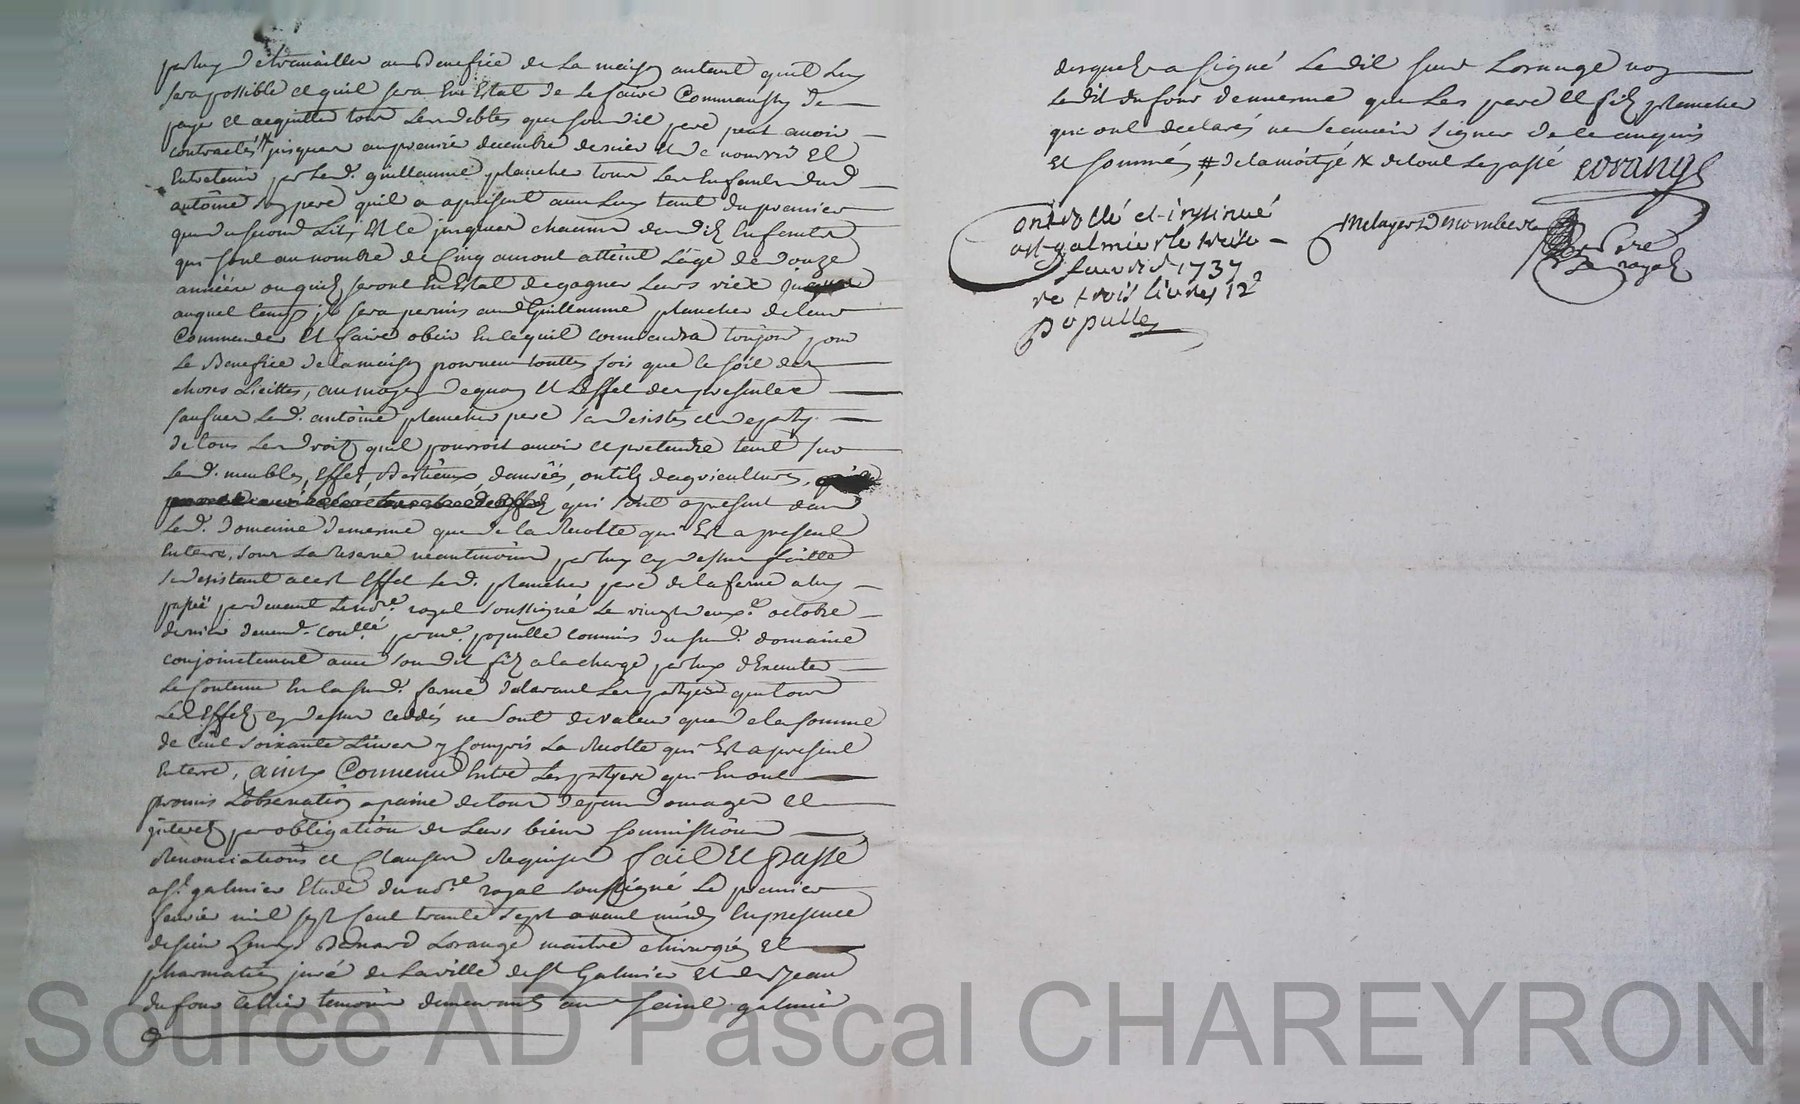 par luy de travailler au Benefice de La maison autant quil luy
sera possible et quil sera En Estat de Le faire Comme aussy de
payer et acquitter tous Les debtes que son dit pere peut avoir
contractés jusques au premier decembre dernier Et de nourrir Et
Entretenir par Led. guillaume plancher tous Les Enfants dud
antoine son pere quil a apresent avec Luy tant du premier
que du second Lit, Et ce jusques chacun desdits Enfants
qui sont au nombre de Cinq auront atteint L'age de douze
années ou quils seront En Estat de gagner Leurs vies
auquel temps il sera permis aud Guillaume plancher de leur
Commander Et faire obeir En ce quil commandra toujours pour
Le Benefice de la maison pourveu touttes fois que ce soit des
choses Licittes, au moyen de quoy Et L'effet des presentes
Led. antoine plancher pere s'est desisté et departy
de tous Les droits quil pourroit avoir et pretendre tant sur
Led. meubles, Effets, Bestiaux, danrées, outils d'agriculture,
qui sont apresent dans
Led. domaine de mesme que de la Recolte qui Est apresent
En terre, sous La Reserve neantmoins par luy cy dessus faitte
se desistant a cest Effet Led. plancher pere de la ferme a luy
passée par devant Le no.re royal soussigné Le vingt deux.e octobre
dernier deuem.t con.llé par m.e populle commis du sud. domaine
conjointement avec son dit fils a la charge par luy d'Executer
Le Contenu En la sud. ferme declarant Les partyes que tous
Les Effets cy dessus ceddés ne sont de valeur que de la somme
de Cent soixante Livres y Compris La Recolte qui Est apresent
En terre, ainsy Convenu Entre Les partyes qui En ont
promis L'observation a paine de tous depens domages et
interets par obligation de Leurs biens soumissions
Renonciations et Clauses Requises fait Et passé
a St. galmier Etude du no.re royal soussigné Le premier
fevrier mil sept Cent trente sept avant midy En presence
de sieur Benard Lorange maitre chirurgien Et
pharmatien juré de La ville de St Galmier Et de Jean
dufour temoins demeurants aud saint galmier
desquels a signé Ledit sieur Lorange non
Ledit dufour de mesme que Les pere Et fils plancher
qui ont declarés ne scavoir signer de ce enquis
Et sommés # de la moityé # de tout Le passé Lorange
Controllé et insinué
a st galmier le treize
fevrier 1737
re trois livres 12 s
populle
royal
Source AD Pascal CHAREYRON